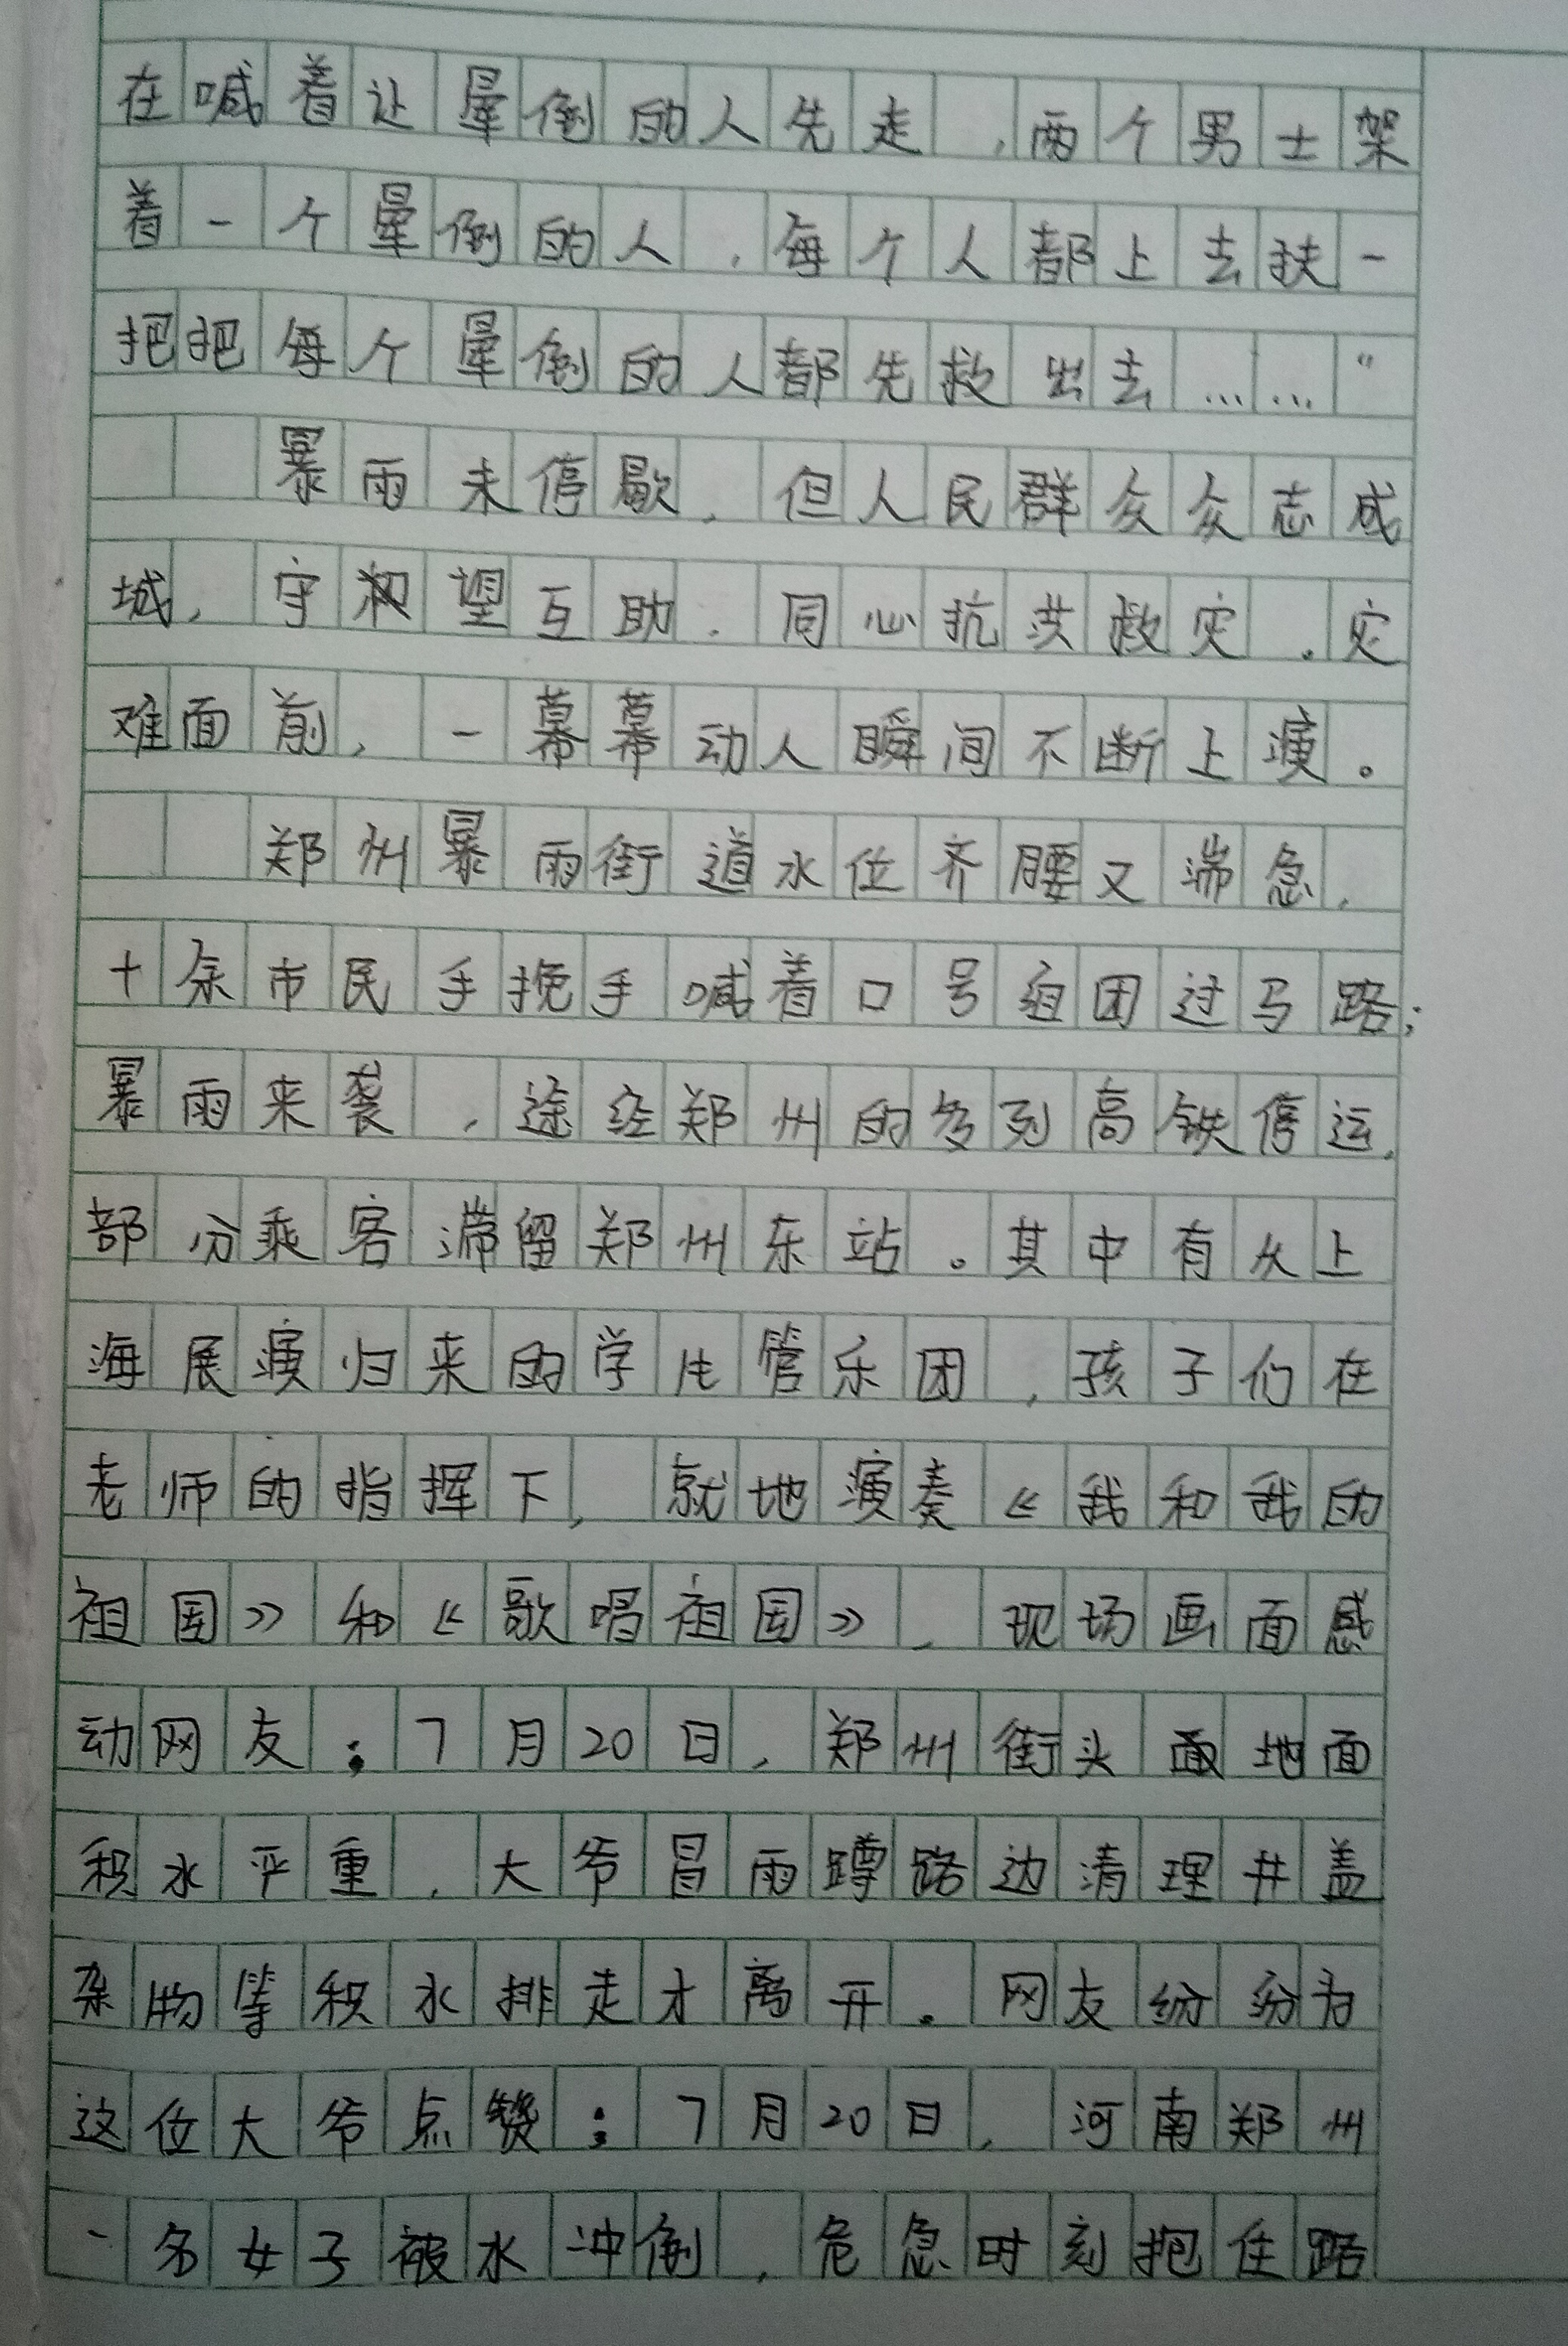 在喊着让晕倒的人先走，两个男士架
着一个晕倒的人，每个人都上去扶一
把把每个晕倒的人都先救出去……”
暴雨未停歇，但人民群众众志成
城，守望互助，同心抗洪救灾。灾
难面前，一幕幕动人瞬间不断上演。
郑州暴雨街道水位齐腰又湍急，
十余市民手挽手喊着口号组团过马路；
暴雨来袭，途经郑州的多列高铁停运，
部分乘客滞留郑州东站。其中有从上
海展演归来的学生管乐团，孩子们在
老师的指挥下，就地演奏《我和我的
祖国》和《歌唱祖国》，现场画面感
动网友；7月20日，郑州街头地面
积水严重，大爷冒雨蹲路边清理井盖
杂物等积水排走才离开。网友纷纷为
这位大爷点赞；7月20日，河南郑州
一名女子被水冲倒，危急时刻抱住路